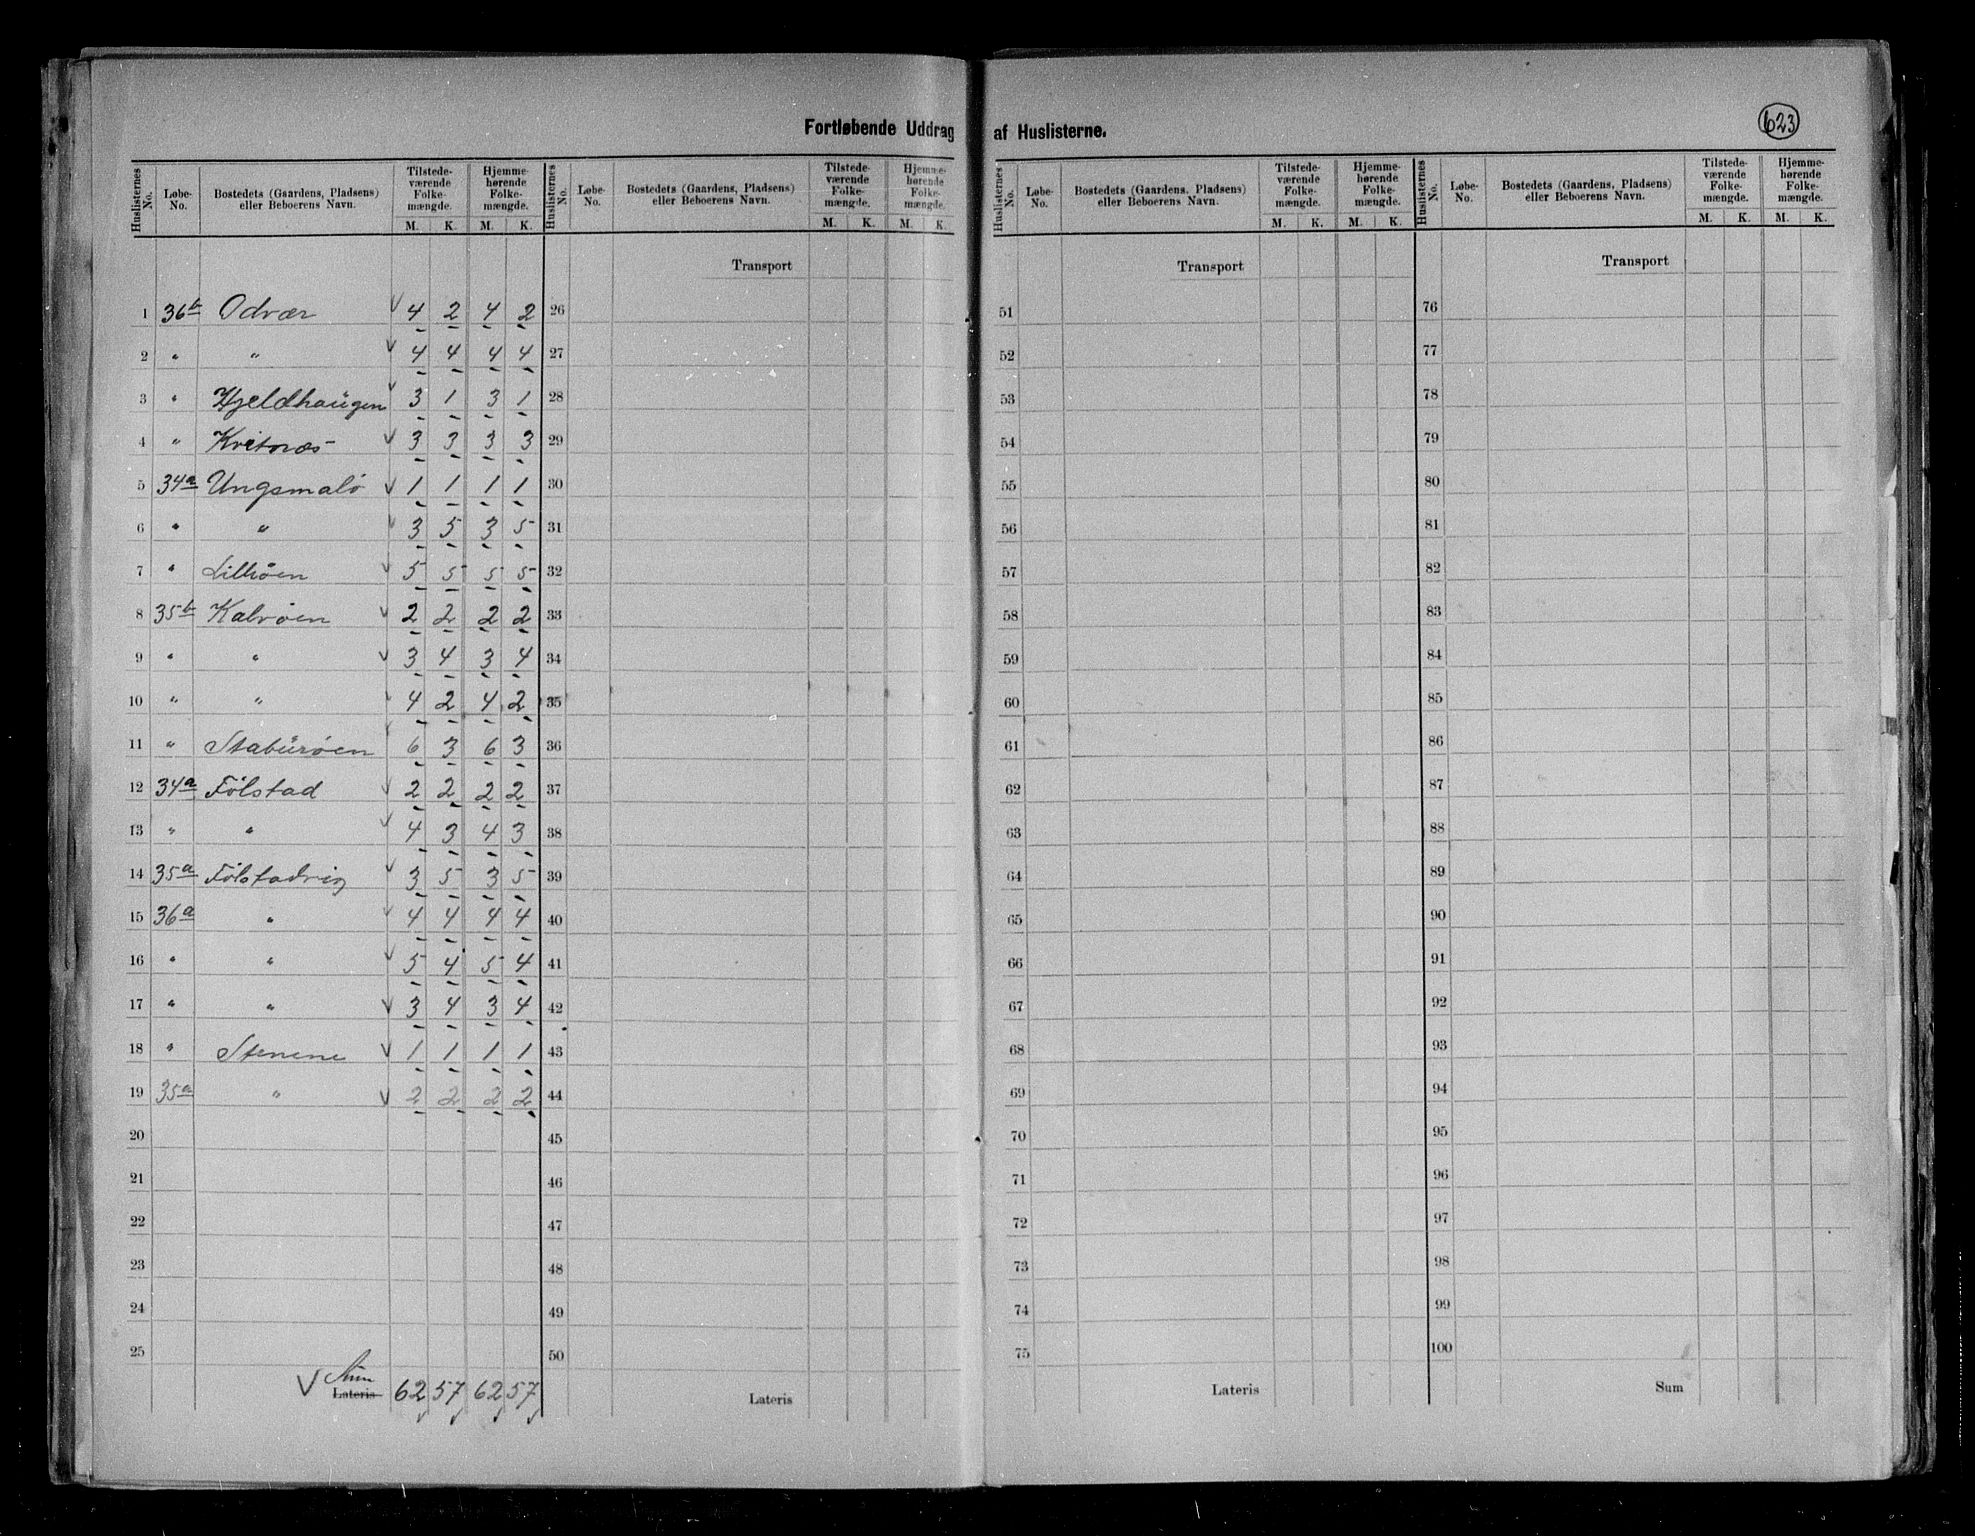 Fortløbende Uddrag af Huslisterne.
623
Huslisternes No. | Løbe-No. | Bostedets (Gaardens, Pladsens) eller Beboerens Navn. | Tilstedeværende Folkemængde. M. K. | Hjemmehørende Folkemængde. M. K.
Huslisternes No. | Løbe-No. | Bostedets (Gaardens, Pladsens) eller Beboerens Navn. | Tilstedeværende Folkemængde. M. K. | Hjemmehørende Folkemængde. M. K.
Huslisternes No. | Løbe-No. | Bostedets (Gaardens, Pladsens) eller Beboerens Navn. | Tilstedeværende Folkemængde. M. K. | Hjemmehørende Folkemængde. M. K.
Huslisternes No. | Løbe-No. | Bostedets (Gaardens, Pladsens) eller Beboerens Navn. | Tilstedeværende Folkemængde. M. K. | Hjemmehørende Folkemængde. M. K.
Transport Transport Transport
1 36b Odvær 4 2 4 2 26 51 76
2 " " 4 4 4 4 27 52 77
3 " Hjeldhaugen 3 1 3 1 28 53 78
4 " Kvitnæs 3 3 3 3 29 54 79
5 34a Ungsmalö 1 1 1 1 30 55 80
6 " " 3 5 3 5 31 56 81
7 " Lilleöen 5 5 5 5 32 57 82
8 35b Kalvöen 2 2 2 2 33 58 83
9 " " 3 4 3 4 34 59 84
10 " " 4 2 4 2 35 60 85
11 " Staburöen 6 3 6 3 36 61 86
12 34a Fölstad 2 2 2 2 37 62 87
13 " " 4 3 4 3 38 63 88
14 35a Fölstadvig 3 5 3 5 39 64 89
15 36a " 4 4 4 4 40 65 90
16 " " 5 4 5 4 41 66 91
17 " " 3 4 3 4 42 67 92
18 " Stenene 1 1 1 1 43 68 93
19 35a " 2 2 2 2 44 69 94
20 45 70 95
21 46 71 96
22 47 72 97
23 48 73 98
24 49 74 99
25 50 75 100
Sum
Lateris 62 57 62 57 Lateris Lateris Sum